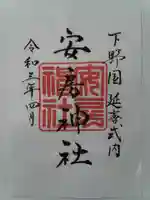 下野国 延喜式内
安房神社
令和三年四月